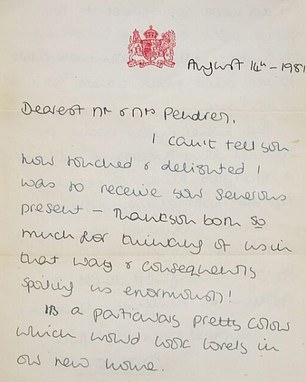 August 14th - 1981
Dearest Mr & Mrs Pendrey,
I can't tell you
how touched & delighted I
was to receive your generous
present - Thankyou both so
much for thinking of us in
that way & consequently
spoiling us enormously!
Its a particularly pretty colour
which would look lovely in
our new home.